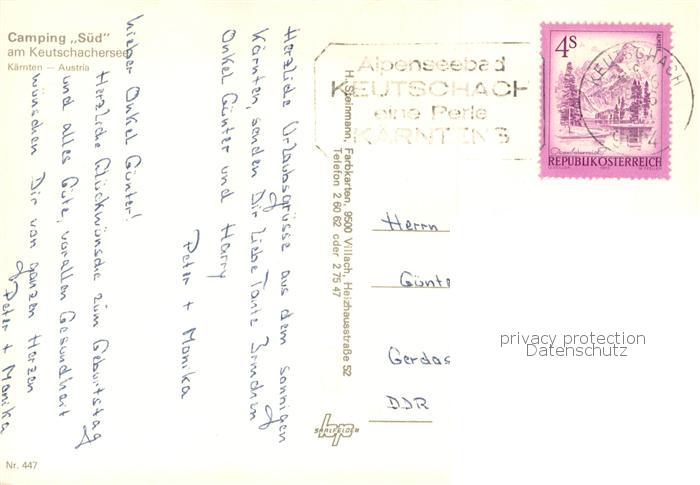 Camping „Süd"
am Keutschachersee
Kärnten – Austria
Lieber Onkel Günter!
Herzliche Glückwünsche zum Geburtstag
und alles Gute, vor allen Gesundheit
wünschen Dir von ganzen Herzen
Peter + Monika
Herzliche Urlaubsgrüsse aus dem sonnigen
Kärnten, senden Dir liebe Tante Irmchen
Onkel Günter und Harry
Peter + Monika
Nr. 447
H. Steinmann, Farbkarten, 9500 Villach, Heizhausstraße 52
Telefon 2 60 62 oder 2 75 47
SAALFELDEN
Alpenseebad
KEUTSCHACH
eine Perle
KÄRNTENS
KEUTSCHACH
4S
ALMSEE
REPUBLIK ÖSTERREICH
Herrn
Günte
Gerdas
DDR
privacy protection
Datenschutz